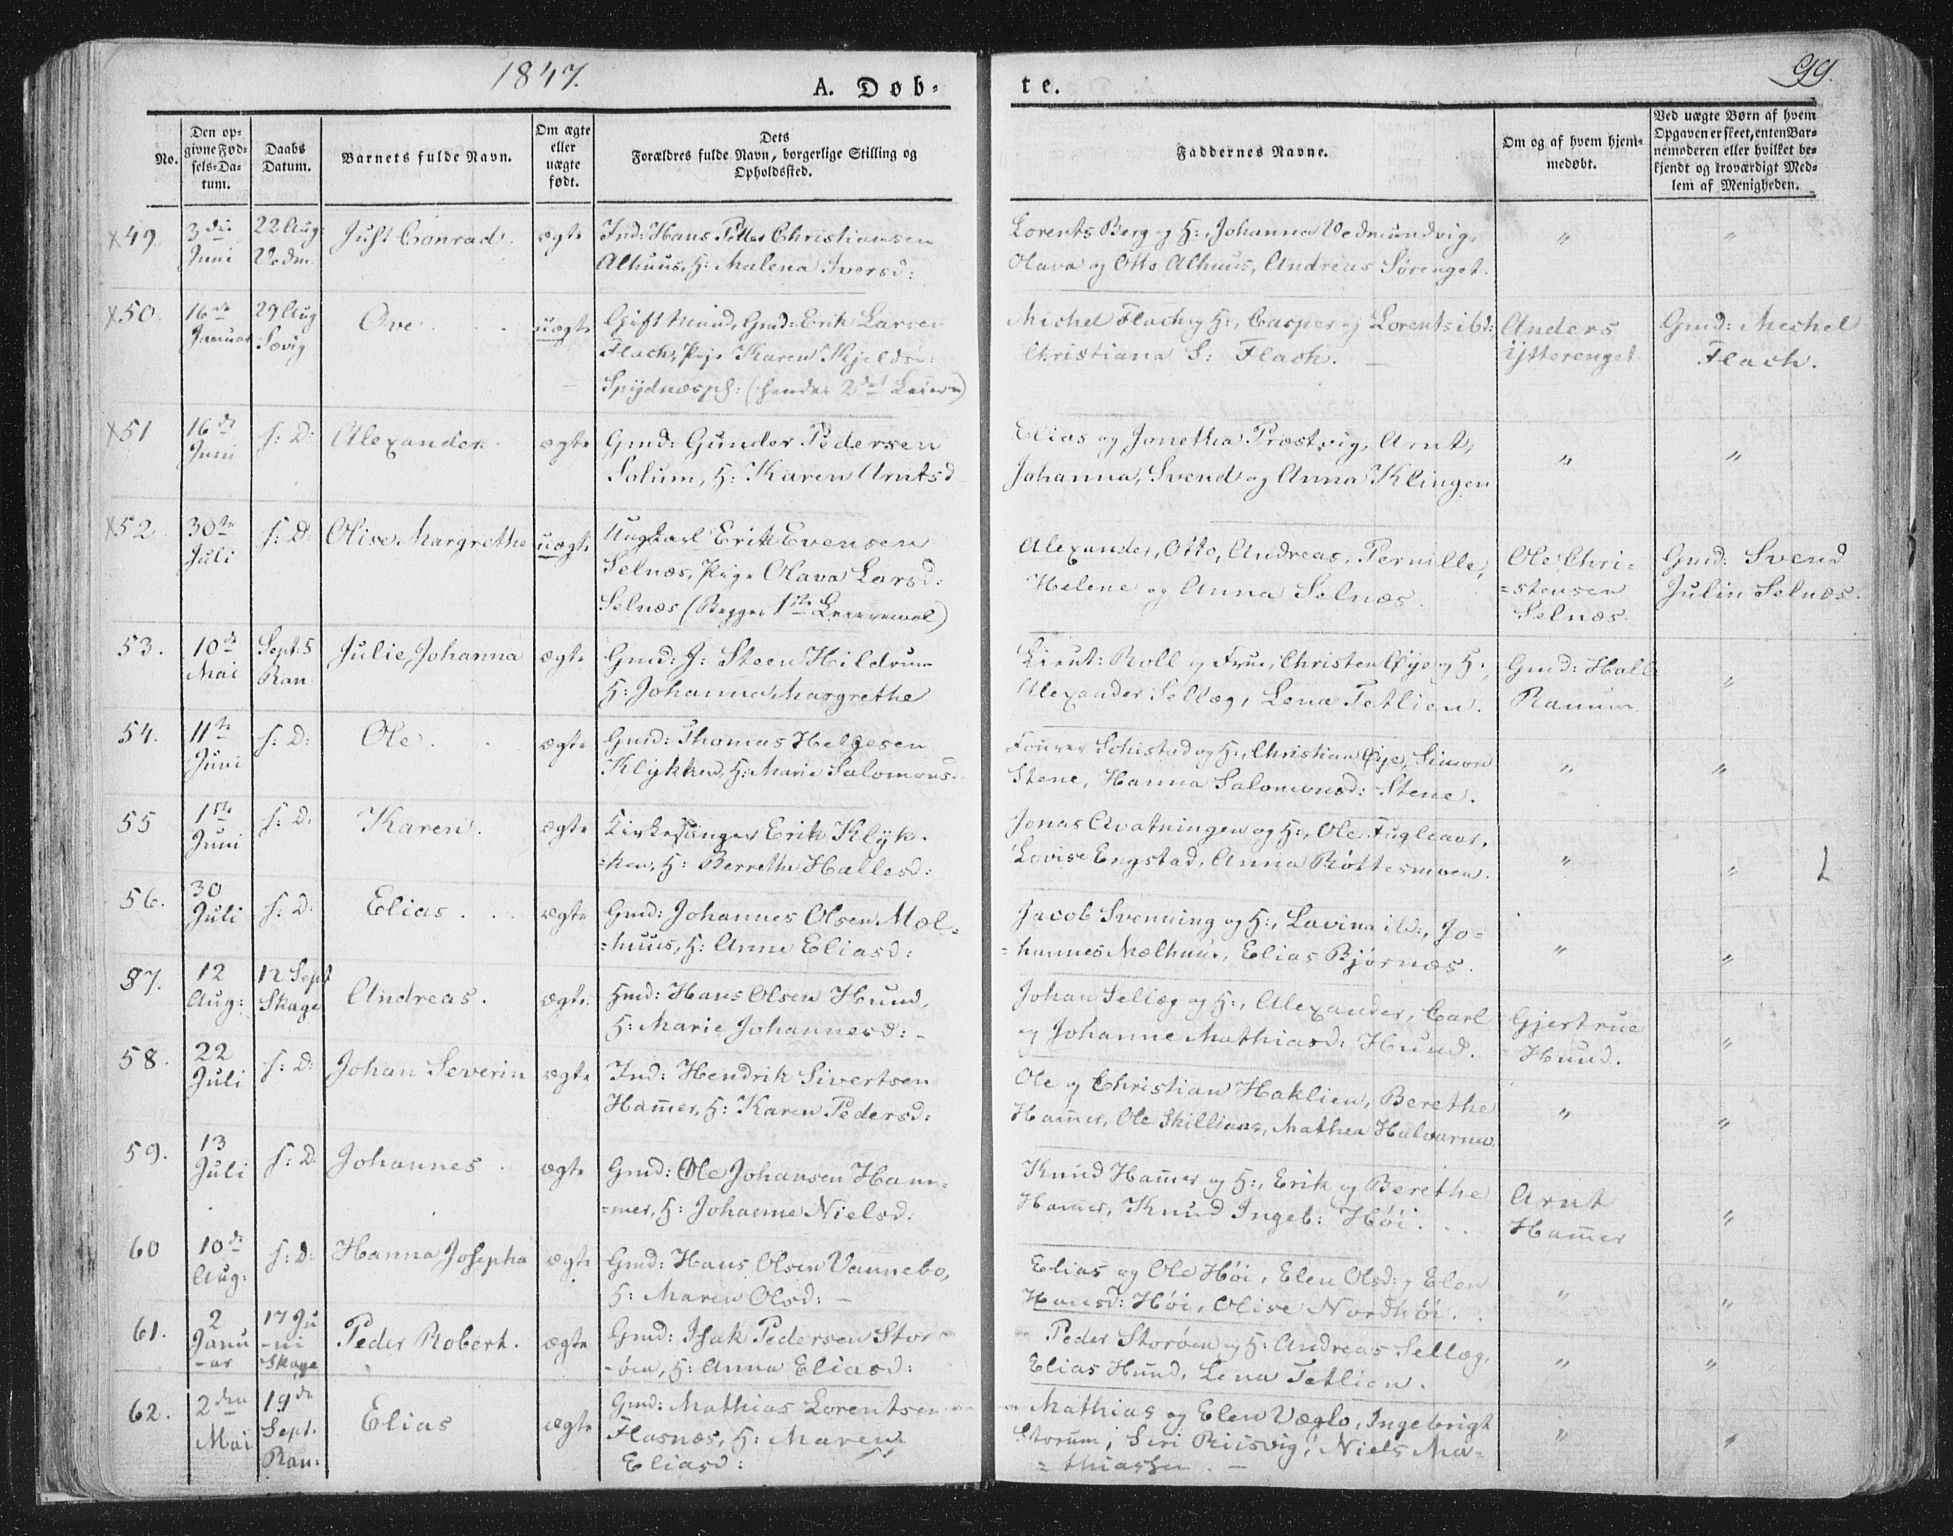 1847.
A. Døb-
te.
99.
No.
Den op-
givne Fød-
sels-Da-
tum.
Daabs
Datum.
Barnets fulde Navn.
Om ægte
eller
uægte
født.
Dets
Forældres fulde Navn, borgerlige Stilling og
Opholdssted.
Faddernes Navne.
Om og af hvem hjem-
medøbt.
Ved uægte Børn af hvem
Opgaven er skeet, enten Bar-
nemoderen eller hvilket be-
kjendt og troværdigt Med-
lem af Menigheden.
x49. 3die Juni 22 Aug: Vedm. Just Conrad. ægte
Ind: Hans Petter Christiansen
Alhuus, H: Malena Iversd:
Lorents Berg og H:, Johanna Vedmundvig,
Olava og Otto Alhuus, Andreas Sørenget.
" "
x50. 16de Januar 29 Aug Sævig Ove. uægte
Gift Mand, Gmd: Erik Larsen
Flach, Pige Karen Kjelds:
Spydnæspl: (hendes 2det Leierm)
Michel Flach og H:, Casper og Lorents ibd:
Christiana S: Flach.
Anders
Ytterenget.
Gmd: Mechel
Flach.
x51 16de Juni s: D: Alexander. ægte
Gmd: Gunder Pedersen
Solum, H: Karen Arntsd
Elias og Jonetha Præstvig, Arnt,
Johanna, Svend og Anna Klingen
" "
x52. 30te Juli s: D: Olise Margrethe uægte
Ungkarl Erik Evensen
Selnæs, Pige Olava Larsd:
Selnæs (Begges 1ste Leiermaal)
Alexander, Otto, Andreas, Pernille,
Helene og Anna Selnæs.
Ole Chri-
=stensen
Selnæs.
Gmd: Svend
Julin Selnæs.
53. 10de Mai Sept. 5 Ran. Julie Johanna ægte
Gmd: J: Steen Hildrum
H: Johanna Margrethe
Lieut: Roll og Frue, Christen Øye og H:,
Alexander Sellæg, Lena Tetlien.
Gmd: Hall
Ranum
"
54. 11te Juni s: D: Ole. ægte
Gmd: Thomas Helgesen
Klykken, H: Marie Salomonsd.
Fourer Schistad og H:, Christian Øye, Simon
Stene, Hanna Salomonsd: Stene.
" "
55 1ste Juni s: D: Karen. ægte
Kirkesanger Erik Klyk-
=ken, H: Berrethe Hallesd:
Jonas Avatningen og H:, Ole Fugleaar,
Lovise Engstad, Anna Røttesmoen.
" "
56. 30 Juli s: D: Elias. ægte
Gmd: Johannes Olsen Mæl-
=huus, H: Anne Eliasd:
Jacob Svenning og H:, Lavina ibd:, Jo-
=hannes Mælhuus, Elias Bjørnæs.
" "
57. 12 Aug: 12 Sept Skage Andreas. ægte.
Hmd: Hans Olsen Hund,
H: Marie Johannesd:
Johan Sellæg og H:, Alexander, Carl
og Johanne Mathiasd: Hund.
Gjertrue
Hund.
"
58. 22 Juli s: D: Johan Severin ægte
Ind: Hendrik Sivertsen
Ham̄er, H: Karen Pedersd:
Ole og Christian Haklien, Berethe
Ham̄er, Ole Skilliaas, Mathea Halvarmo
" "
59. 13 Juli s: D. Johannes. ægte
Gmd: Ole Johansen Ham-
=mer, H: Johanne Nielsd:
Knud Ham̄er og H:, Erik og Berethe
Ham̄er, Knud Ingeb: Høi.
Arnt
Ham̄er
"
60 10de Aug: s: D: Hanna Josepha ægte
Gmd: Hans Olsen Vannebo,
H: Maren Olsd:
Elias og Ole Høi, Elen Olsd: og Elen
Hansd: Høi, Olise Nordhøi.
" "
61. 2 Janu-ar 17 Ju-ni Skage Peder Robert. ægte
Gmd: Isak Pedersen Stor-
-øen, H: Anna Eliasd:
Peder Storøen og H: Andreas Sellæg,
Elias Hund, Lena Tetlien.
" "
62. 2den Mai 19de Sept. Ran: Elias ægte
Gmd: Mathias Lorentsen
Flasnæs, H: Maren
Eliasd:
Mathias og Elen Væglo, Ingebrigt
Storum, Siri Riisvig, Niels Ma-
=thiassen.
" "